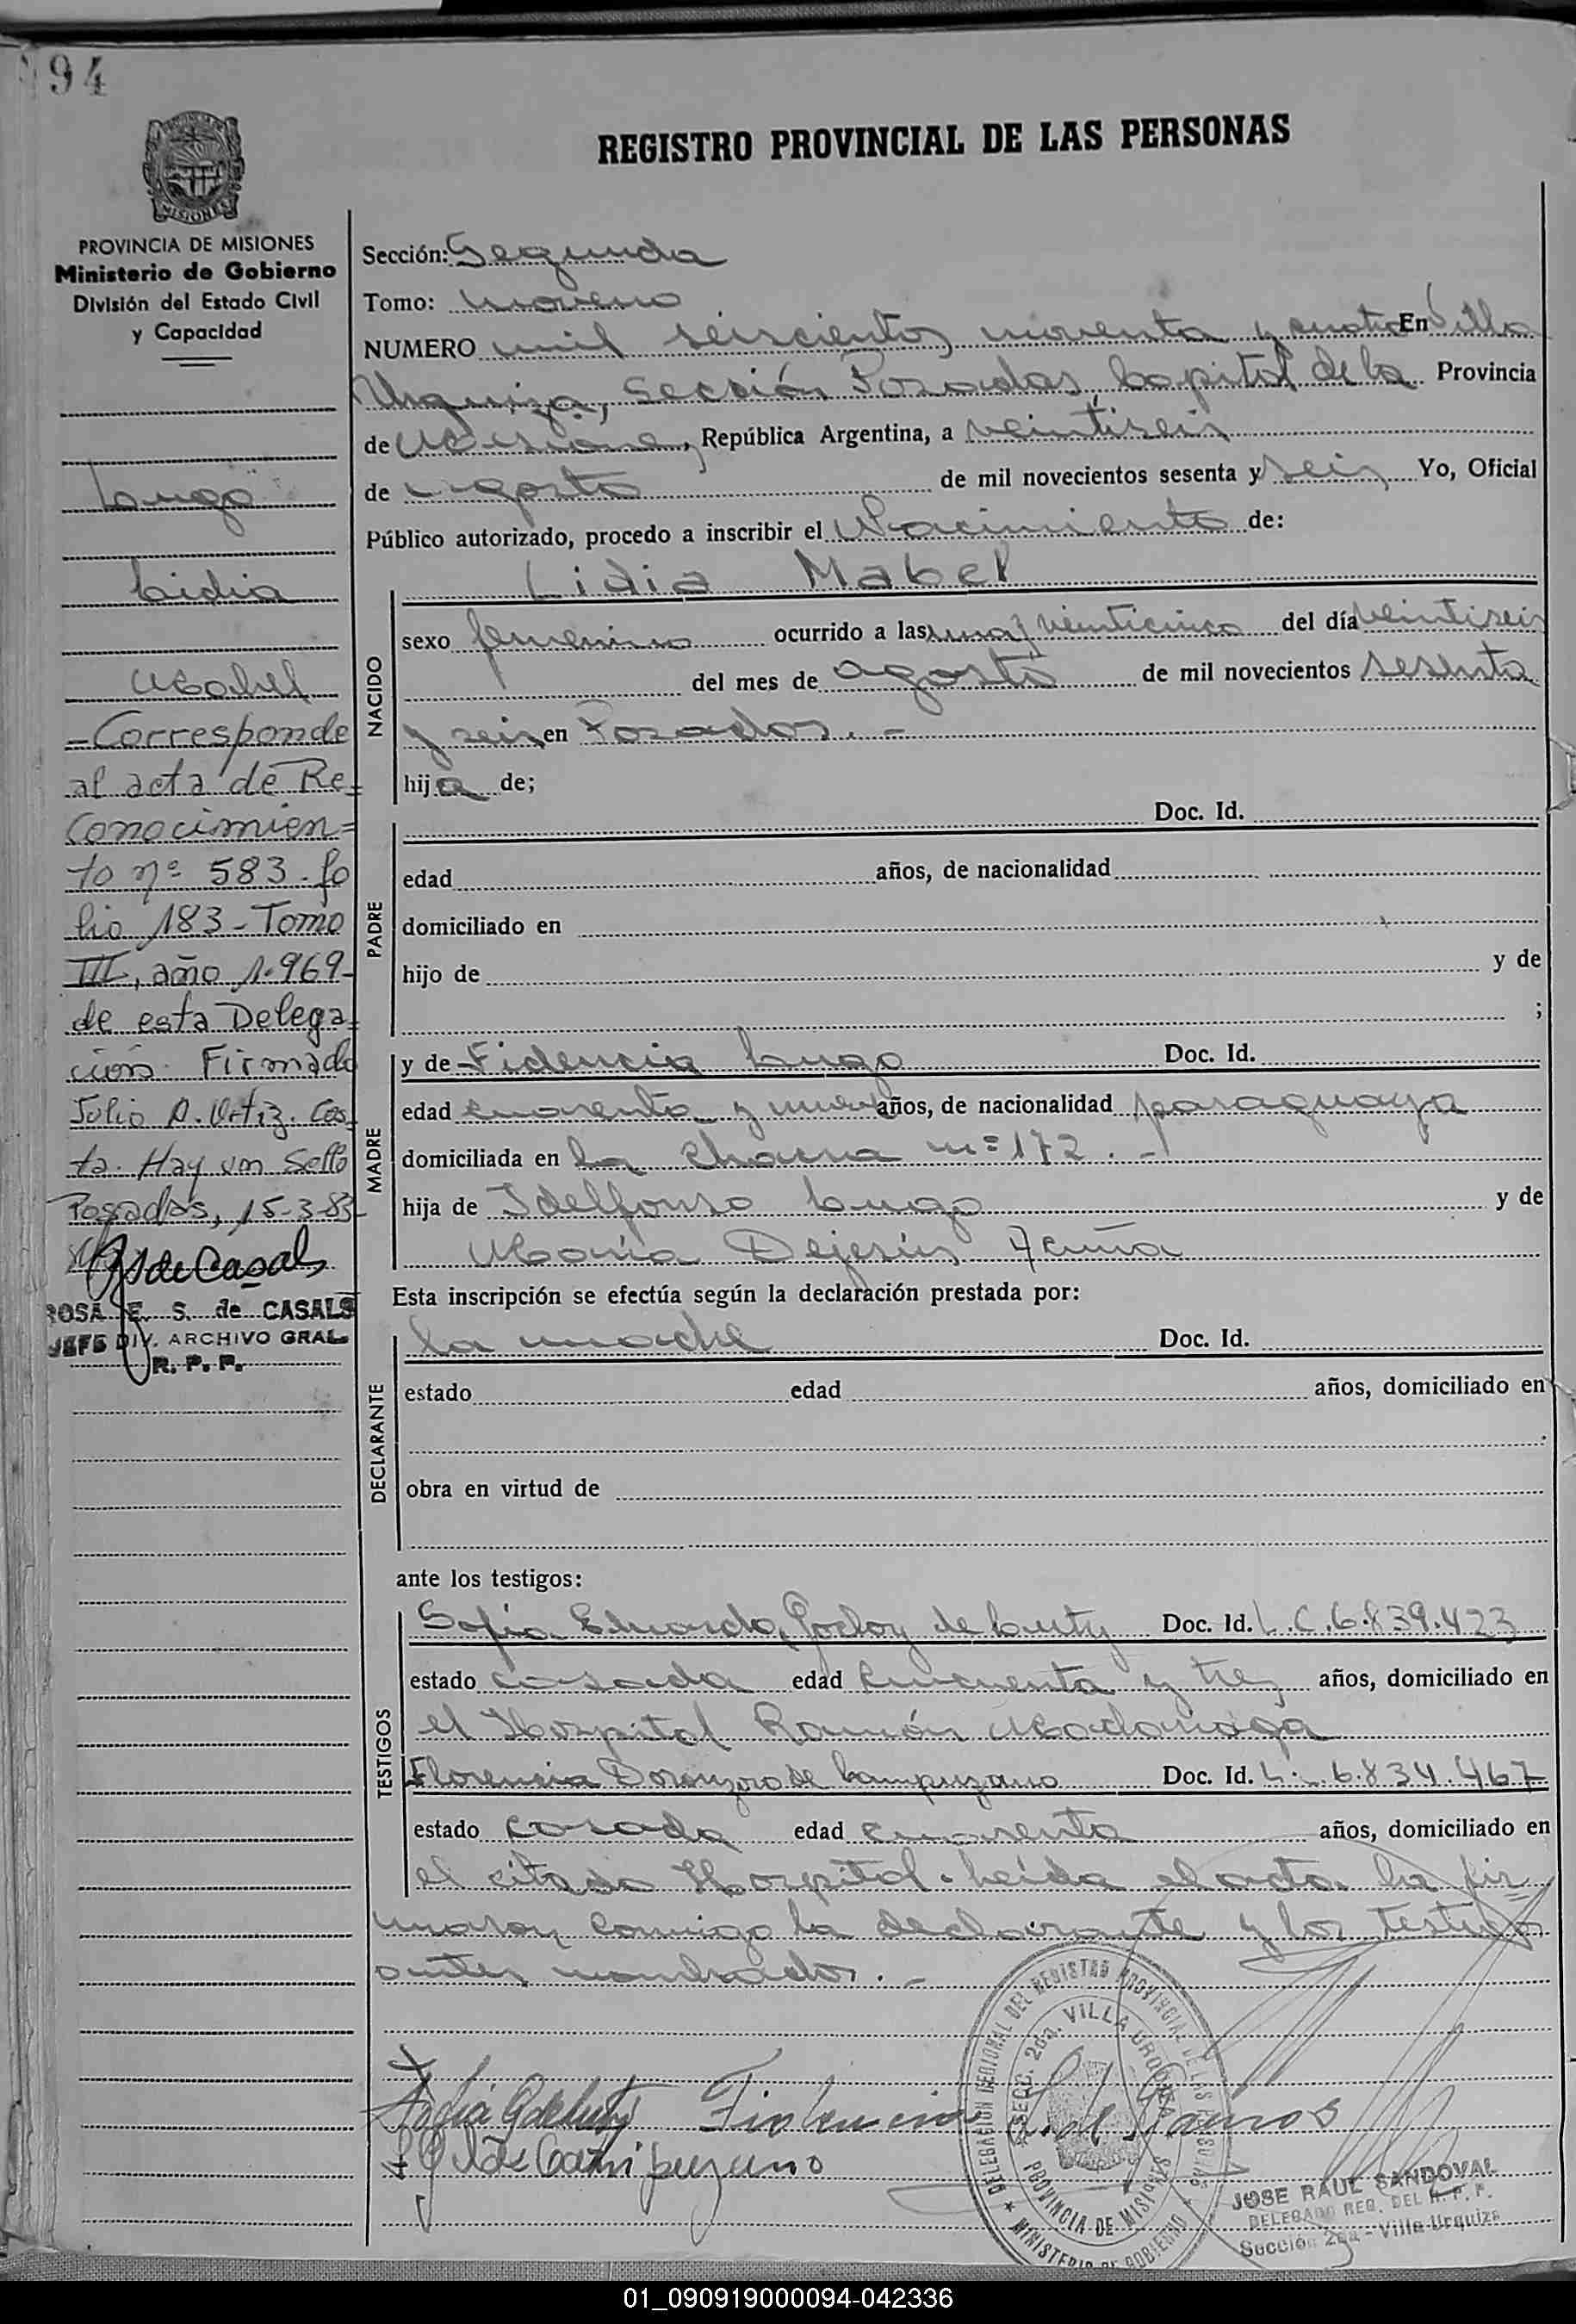 94
REGISTRO PROVINCIAL DE LAS PERSONAS
MISIONES
PROVINCIA DE MISIONES
Ministerio de Gobierno
División del Estado Civil
y Capacidad
Lugo
Lidia
Mabel
-Corresponde
al acta de Re=
conocimien=
to nº 583-fo
lio 183-Tomo
III, año 1.969-
de esta Delega=
ción. Firmado
Julio A. Ortiz. Cos
ta. Hay un Sello
Posadas, 15-3-83
de Casals
ROSA E. S. de CASALS
JEFE DIV. ARCHIVO GRAL
R. P. P.
Sección: Segunda
Tomo: noveno
NUMERO mil seiscientos noventa y cuatro En Villa
Urquiza, Sección Posadas, Capital de la Provincia
de Misiones, República Argentina, a veintiseis
de agosto de mil novecientos sesenta y seis Yo, Oficial
Público autorizado, procedo a inscribir el Nacimiento de:
NACIDO
Lidia Mabel
sexo femenino ocurrido a las una y veinticinco del día veintiseis
del mes de agosto de mil novecientos sesenta
y seis en Posadas.-
hija de;
PADRE
Doc. Id.
edad años, de nacionalidad
domiciliado en
hijo de y de
;
MADRE
y de Fidencia Lugo Doc. Id.
edad cuarenta y nueve años, de nacionalidad paraguaya
domiciliada en la Chacra nº 172.-
hija de Idelfonso Lugo y de
María Dejesús Acuña
Esta inscripción se efectúa según la declaración prestada por:
DECLARANTE
la madre Doc. Id.
estado edad años, domiciliado en
obra en virtud de
ante los testigos:
TESTIGOS
Sofia Eduarda Godoy de Doc. Id. L.C. 6.839.423
estado casada edad cincuenta y tres años, domiciliado en
el Hospital Ramón Madariaga
Florencia de Campuzano Doc. Id. L.C. 6.834.467
estado casada edad cuarenta años, domiciliado en
el citado Hospital. Leída el acta la fir=
maron conmigo la declarante y los testigos
antes nombrados.-
Sofia G de
Fidencia L. de Ramos
de Campuzano
DELEGACION REGIONAL DEL REGISTRO PROVINCIAL DE LAS PERSONAS
SECC. 2da. VILLA URQUIZA
PROVINCIA DE MISIONES
MINISTERIO DE GOBIERNO
JOSE RAUL SANDOVAL
DELEGADO REG. DEL R. P. P.
Sección 2da - Villa Urquiza
01_090919000094-042336